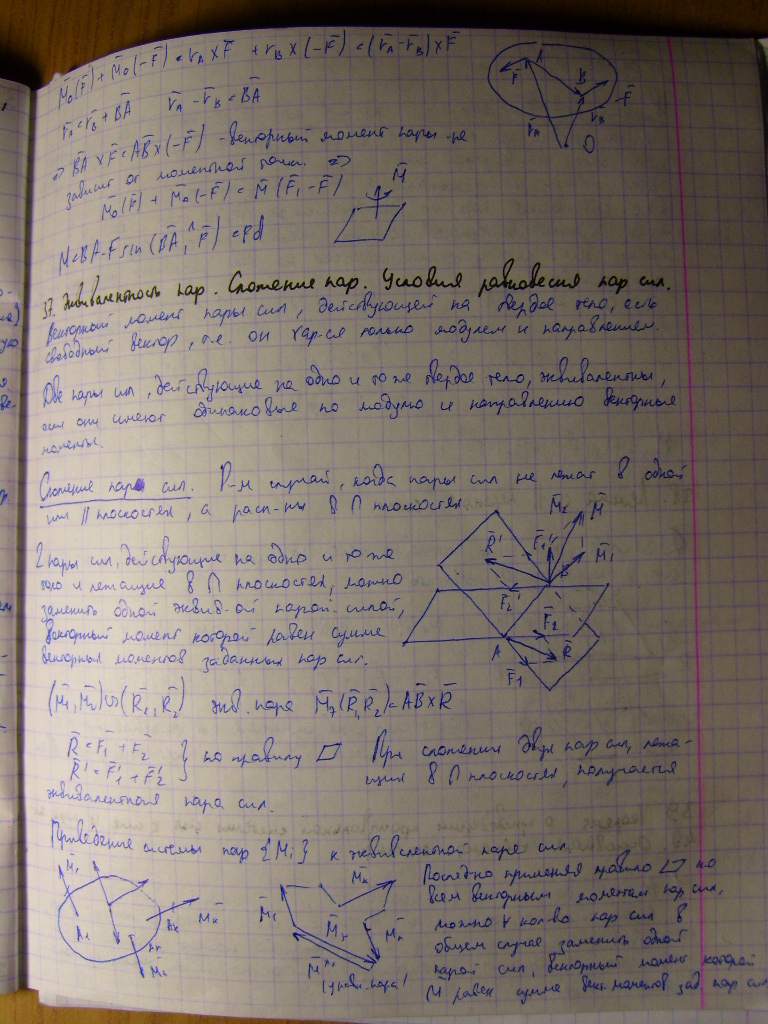 M̄₀(F̄) + M̄₀(-F̄) = r̄_A × F̄ + r̄_B × (-F̄) = (r̄_A - r̄_B) × F̄
r̄_A = r̄_B + B̄Ā r̄_A - r̄_B = B̄Ā
=> B̄Ā × F̄ = ĀB̄ × (-F̄) - векторный момент пары - не
зависит от моментной точки. =>
M̄₀(F̄) + M̄₀(-F̄) = M̄(F̄, -F̄)
M = BA·F sin(B̄Ā, ^ F̄) = Fd
A
B
F̄
-F̄
r̄_A
r̄_B
O
M̄
37. Эквивалентность пар. Сложение пар. Условия равновесия пар сил.
Векторный момент пары сил, действующей на твердое тело, есть
свободный вектор, т.е. он хар-ся только модулем и направлением.
Две пары сил, действующие на одно и то же твердое тело, эквивалентны,
если они имеют одинаковые по модулю и направлению векторные
моменты.
Сложение пар сил. Р-м случай, когда пары сил не лежат в одной
или || плоскостях, а расп-ны в ∩ плоскостях
2 пары сил, действующие на одно и то же
тело и лежащие в ∩ плоскостях, можно
заменить одной эквив-ой парой силой,
Векторный момент которой равен сумме
векторных моментов заданных пар сил.
M̄₂
M̄
R̄'
F̄₁'
M̄₁
B
F̄₂'
F̄₂
A
R̄
F̄₁
(M̄₁, M̄₂) ∽ (R̄₁, R̄₂) экв. пара (R̄, R̄₂) = ĀB̄ × R̄
R̄ = F̄₁ + F̄₂
R̄' = F̄₁' + F̄₂' } по правилу ▱ При сложении двух пар сил, лежа-
щих в ∩ плоскостях, получается
эквивалентная пара сил.
Приведение системы пар {M̄i} к эквивалентной паре сил.
Последно применяя правило ▱ ко
всем векторным моментам пар сил,
можно ∀ кол-во пар сил в
общем случае заменить одной
парой сил, векторный момент которой
M̄ равен сумме вект. моментов зад. пар сил
M̄₁
A₁
M̄к
Aк
M̄₁
M̄к
M̄